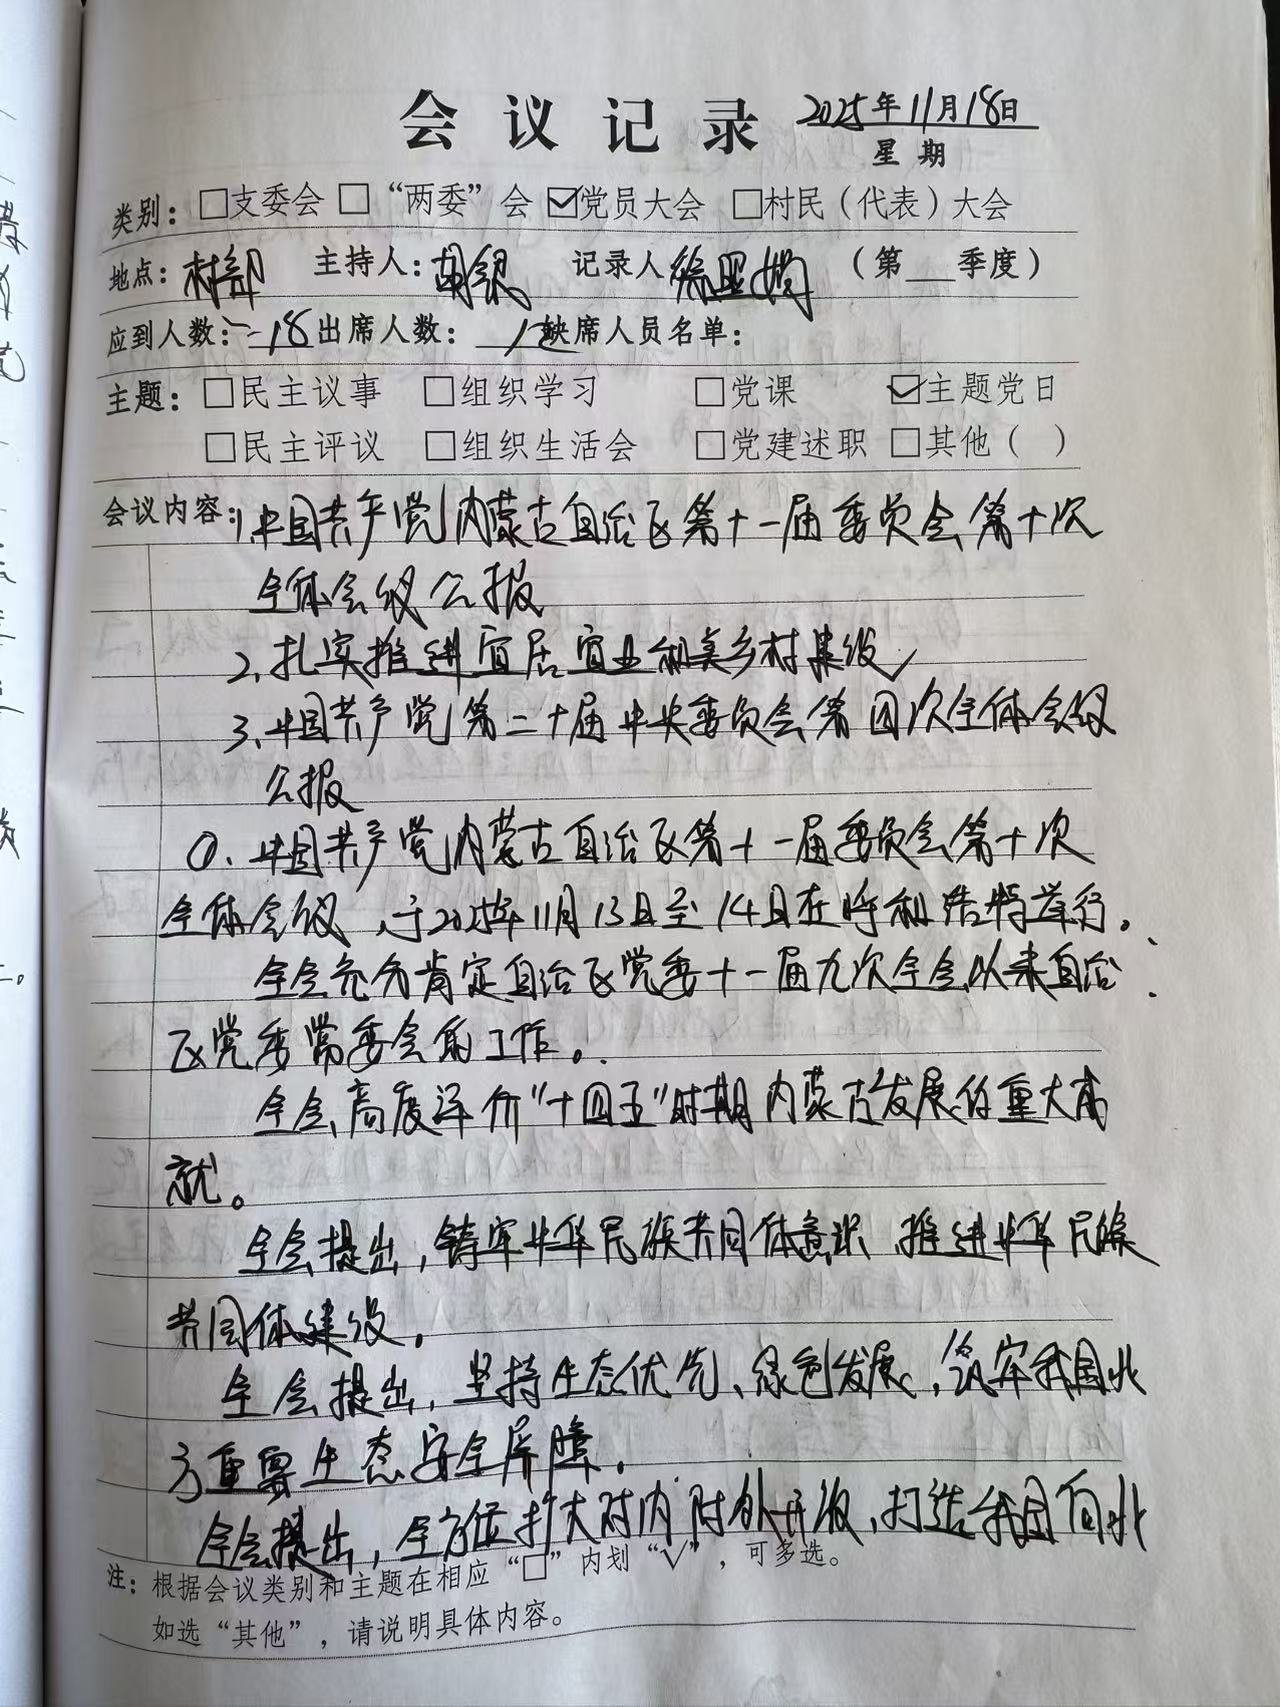 会议记录 2025年11月18日
星期
类别：□支委会 □“两委”会 ☑党员大会 □村民（代表）大会
地点：村部 主持人：胡银 记录人 徐昭娟 （第__季度）
应到人数：18 出席人数： 缺席人员名单：
主题：□民主议事 □组织学习 □党课 ☑主题党日
□民主评议 □组织生活会 □党建述职 □其他（ ）
会议内容：1.中国共产党内蒙古自治区第十一届委员会第十次
全体会议公报
2、扎实推进宜居宜业和美乡村建设
3、中国共产党第二十届中央委员会第四次全体会议
公报
①、中国共产党内蒙古自治区第十一届委员会第十次
全体会议，于2025年11月13日至14日在呼和浩特举行。
全会充分肯定自治区党委十一届九次全会以来自治
区党委常委会的工作。
全会高度评价“十四五”时期内蒙古发展的重大成
就。
全会提出，铸牢中华民族共同体意识、推进中华民族
共同体建设。
全会提出，坚持生态优先、绿色发展，筑牢我国北
方重要生态安全屏障。
全会提出，全方位扩大对内对外开放，打造我国向北
注：根据会议类别和主题在相应“□”内划“√”，可多选。
如选“其他”，请说明具体内容。